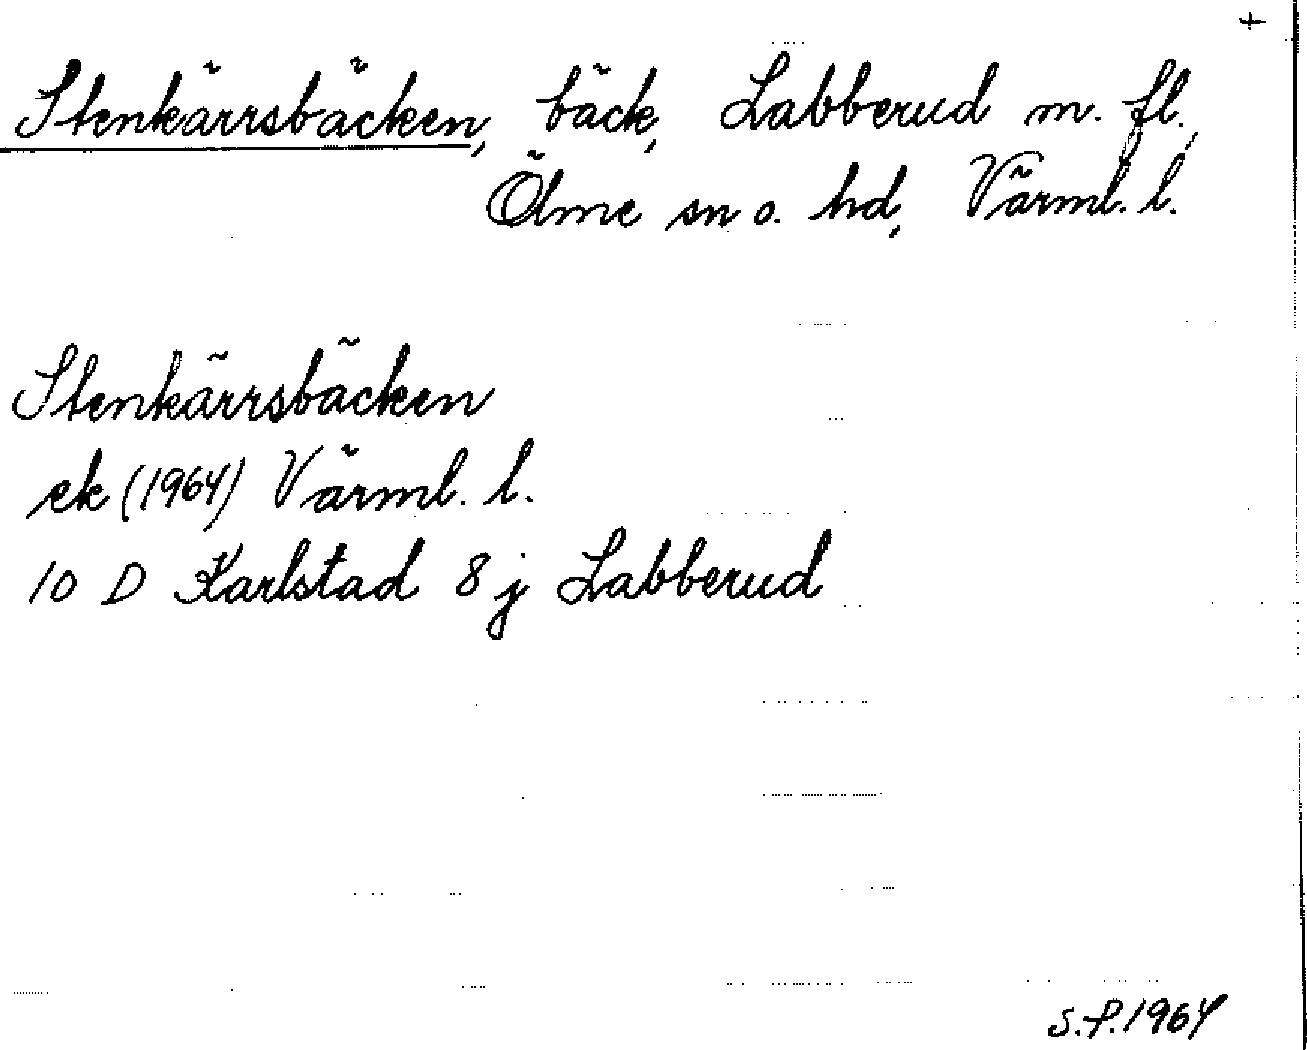 +
Stenkärrsbäcken, bäck, Labberud m. fl.,
Ölme sn o. hd, Värml. l.
Stenkärrsbäcken
ek (1964) Värml. l.
10 D Karlstad 8 j Labberud
S.P. 1964